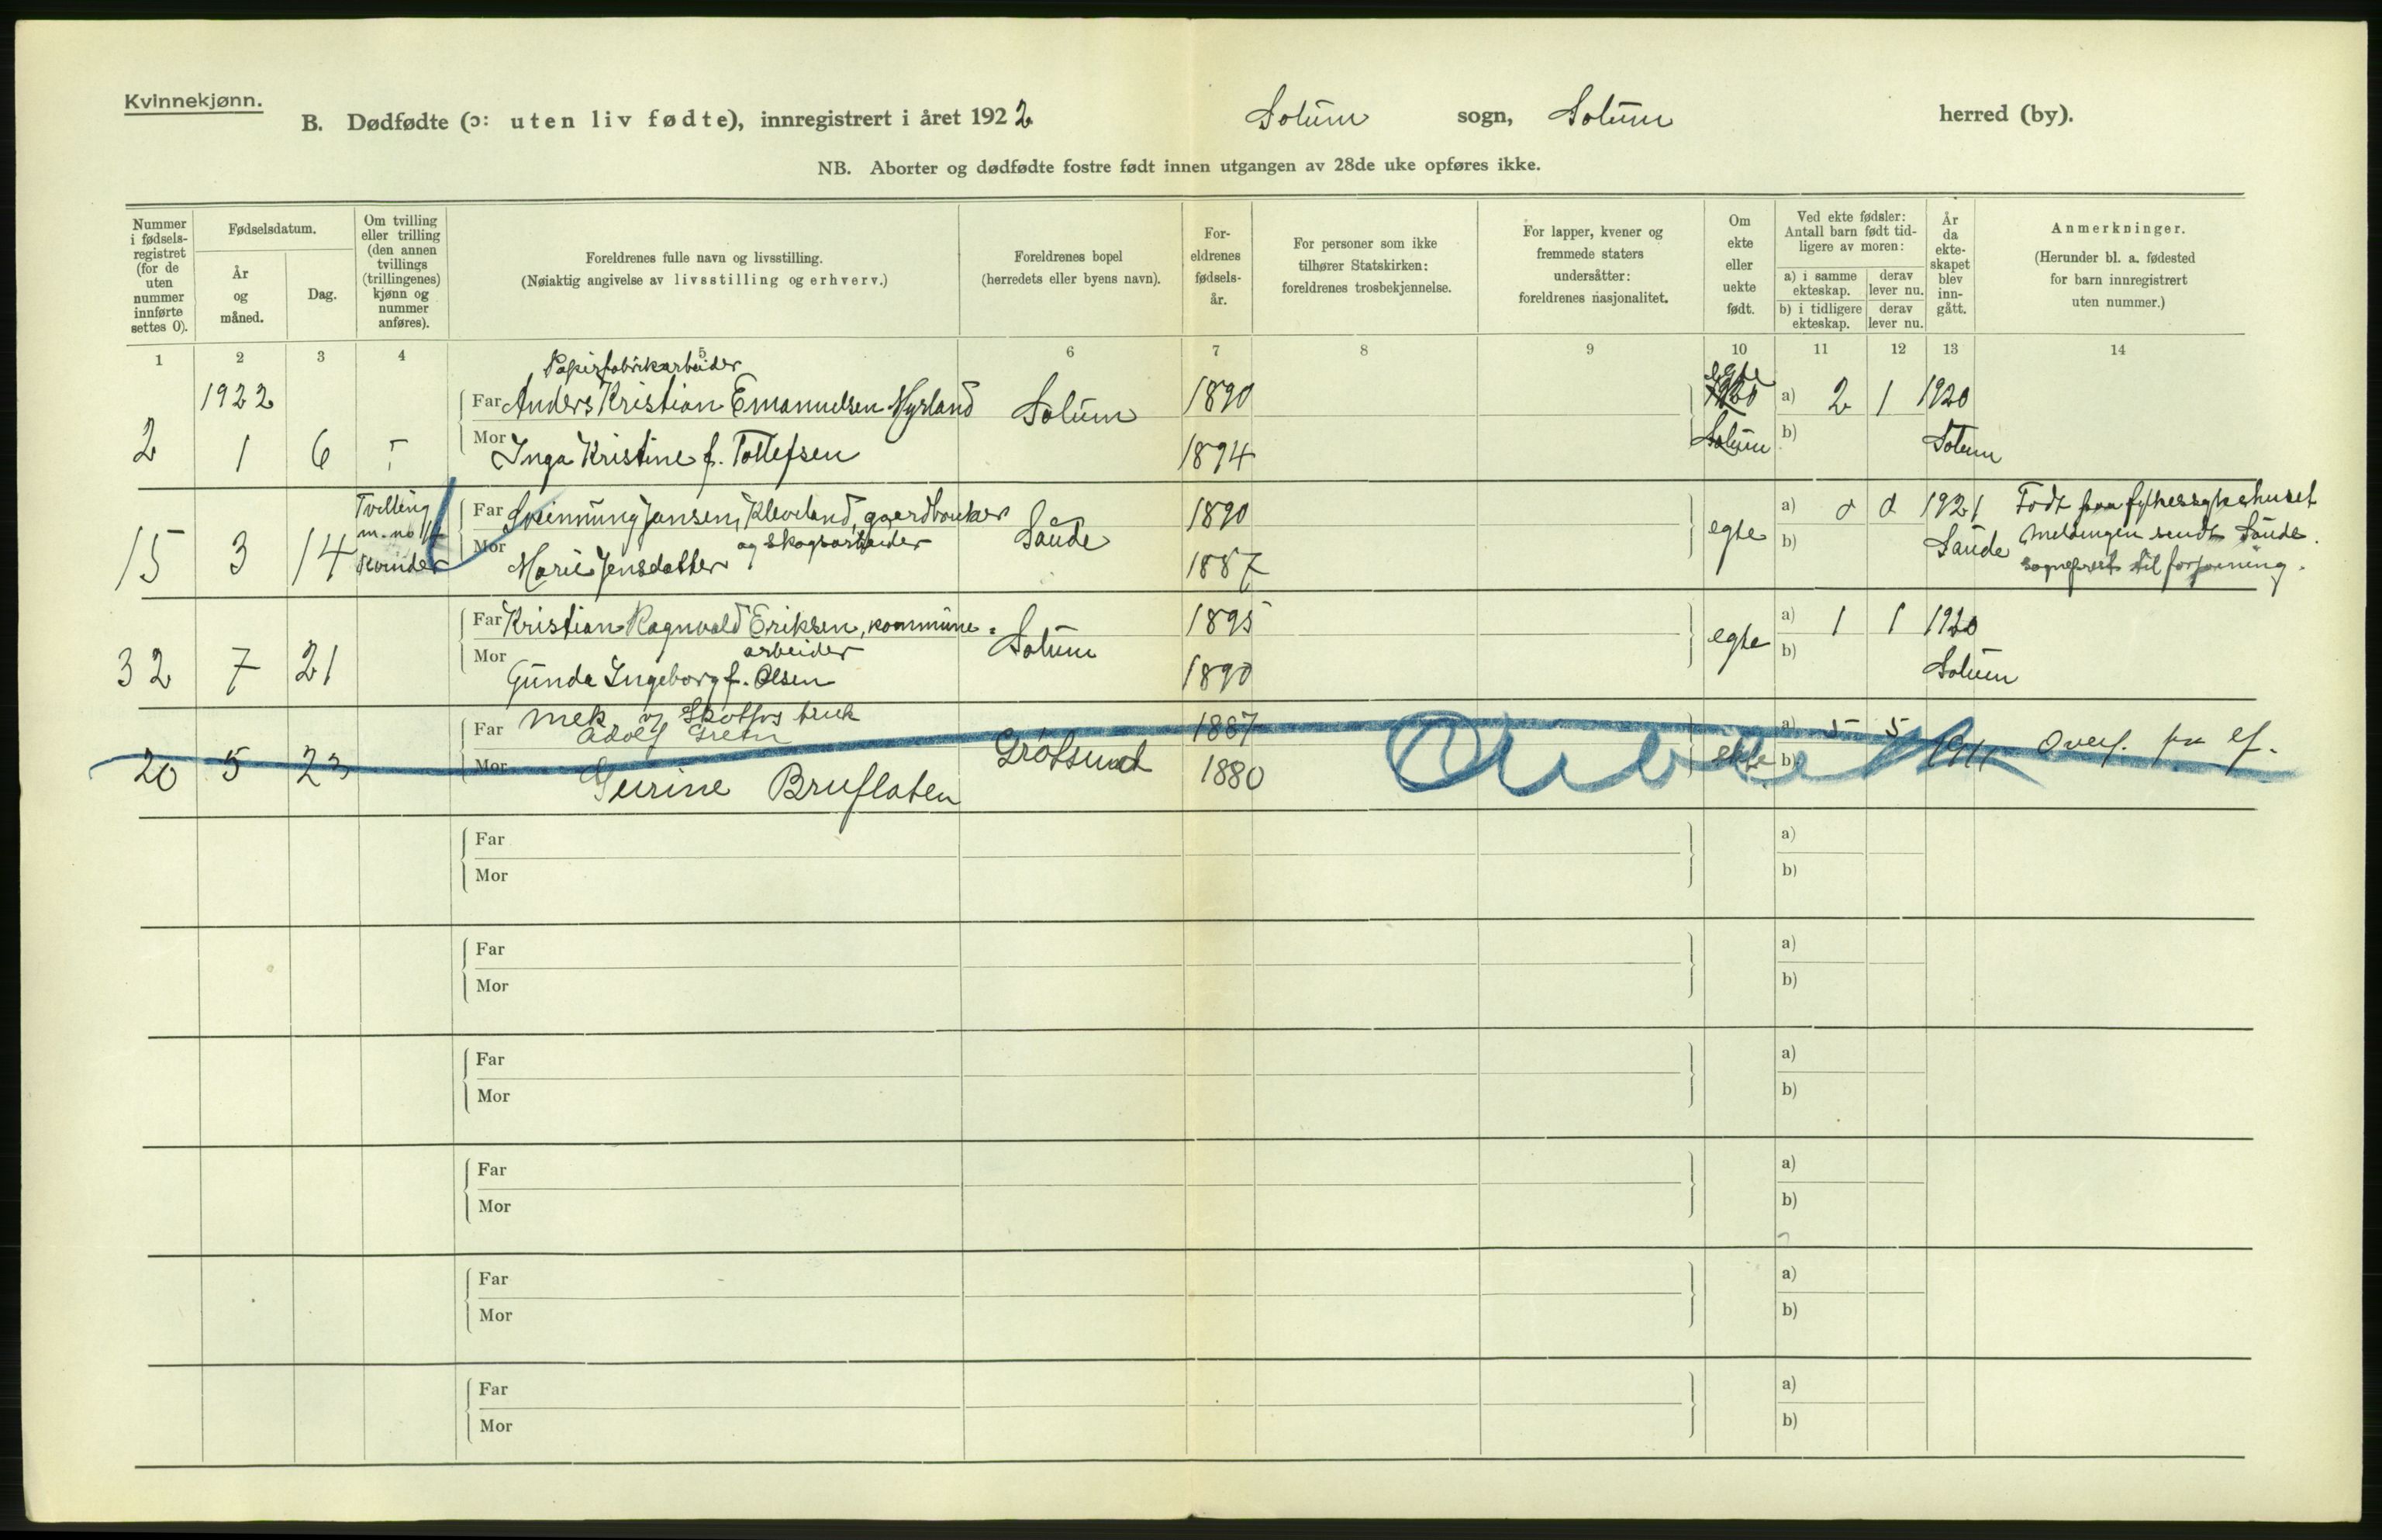 Kvinnekjønn.
B. Dødfødte (ɔ: uten liv fødte), innregistrert i året 1922 Solum sogn, Solum herred (by).
NB. Aborter og dødfødte fostre født innen utgangen av 28de uke opføres ikke.
Nummer i fødsels-registret (for de uten nummer innførte settes 0).
Fødselsdatum.
År og måned.
Dag.
Om tvilling eller trilling (den annen tvillings (trillingenes) kjønn og nummer anføres).
Foreldrenes fulle navn og livsstilling.
(Nøiaktig angivelse av livsstilling og erhverv.)
Foreldrenes bopel
(herredets eller byens navn).
For-eldrenes fødsels-år.
For personer som ikke tilhører Statskirken: foreldrenes trosbekjennelse.
For lapper, kvener og fremmede staters undersåtter: foreldrenes nasjonalitet.
Om ekte eller uekte født.
Ved ekte fødsler: Antall barn født tid-ligere av moren:
a) i samme ekteskap. derav lever nu.
b) i tidligere ekteskap. derav lever nu.
År da ekte-skapet blev inn-gått.
Anmerkninger.
(Herunder bl. a. fødested for barn innregistrert uten nummer.)
1 2 3 4 5 6 7 8 9 10 11 12 13 14
Papirfabrikarbeider egte
1922 Far Anders Kristian Emanuelsen Myrland Solum 1890 1920 a) 2 1 1920
2 1 6 Mor Inga Kristine f. Tollefsen 1894 Solum b) Solum
Tvilling m. no 14 Kvinde
Far Sveinung Jansen Kleveland, gaardbruker og skogsarbeider Saude 1890 egte a) 1921 Født paa fylkessykehuset
15 3 14 Mor Marie Jensdatter 1887 b) Saude Meldingen sendt Saude
sogneprest til forføining.
Far Kristian Ragnvald Eriksen, kommune-arbeider Solum 1895 egte a) 1 1 1920
32 7 21 Mor Gunda Ingeborg f. Olsen 1890 b) Solum
Mek. Skotfos bruk
Far Adolf 1887 a) 5 5 1911
20 5 23 Mor Gurine Bruflaten Grøtsund 1880 ekte b)
Far a)
Mor b)
Far a)
Mor b)
Far a)
Mor b)
Far a)
Mor b)
Far a)
Mor b)
Far a)
Mor b)